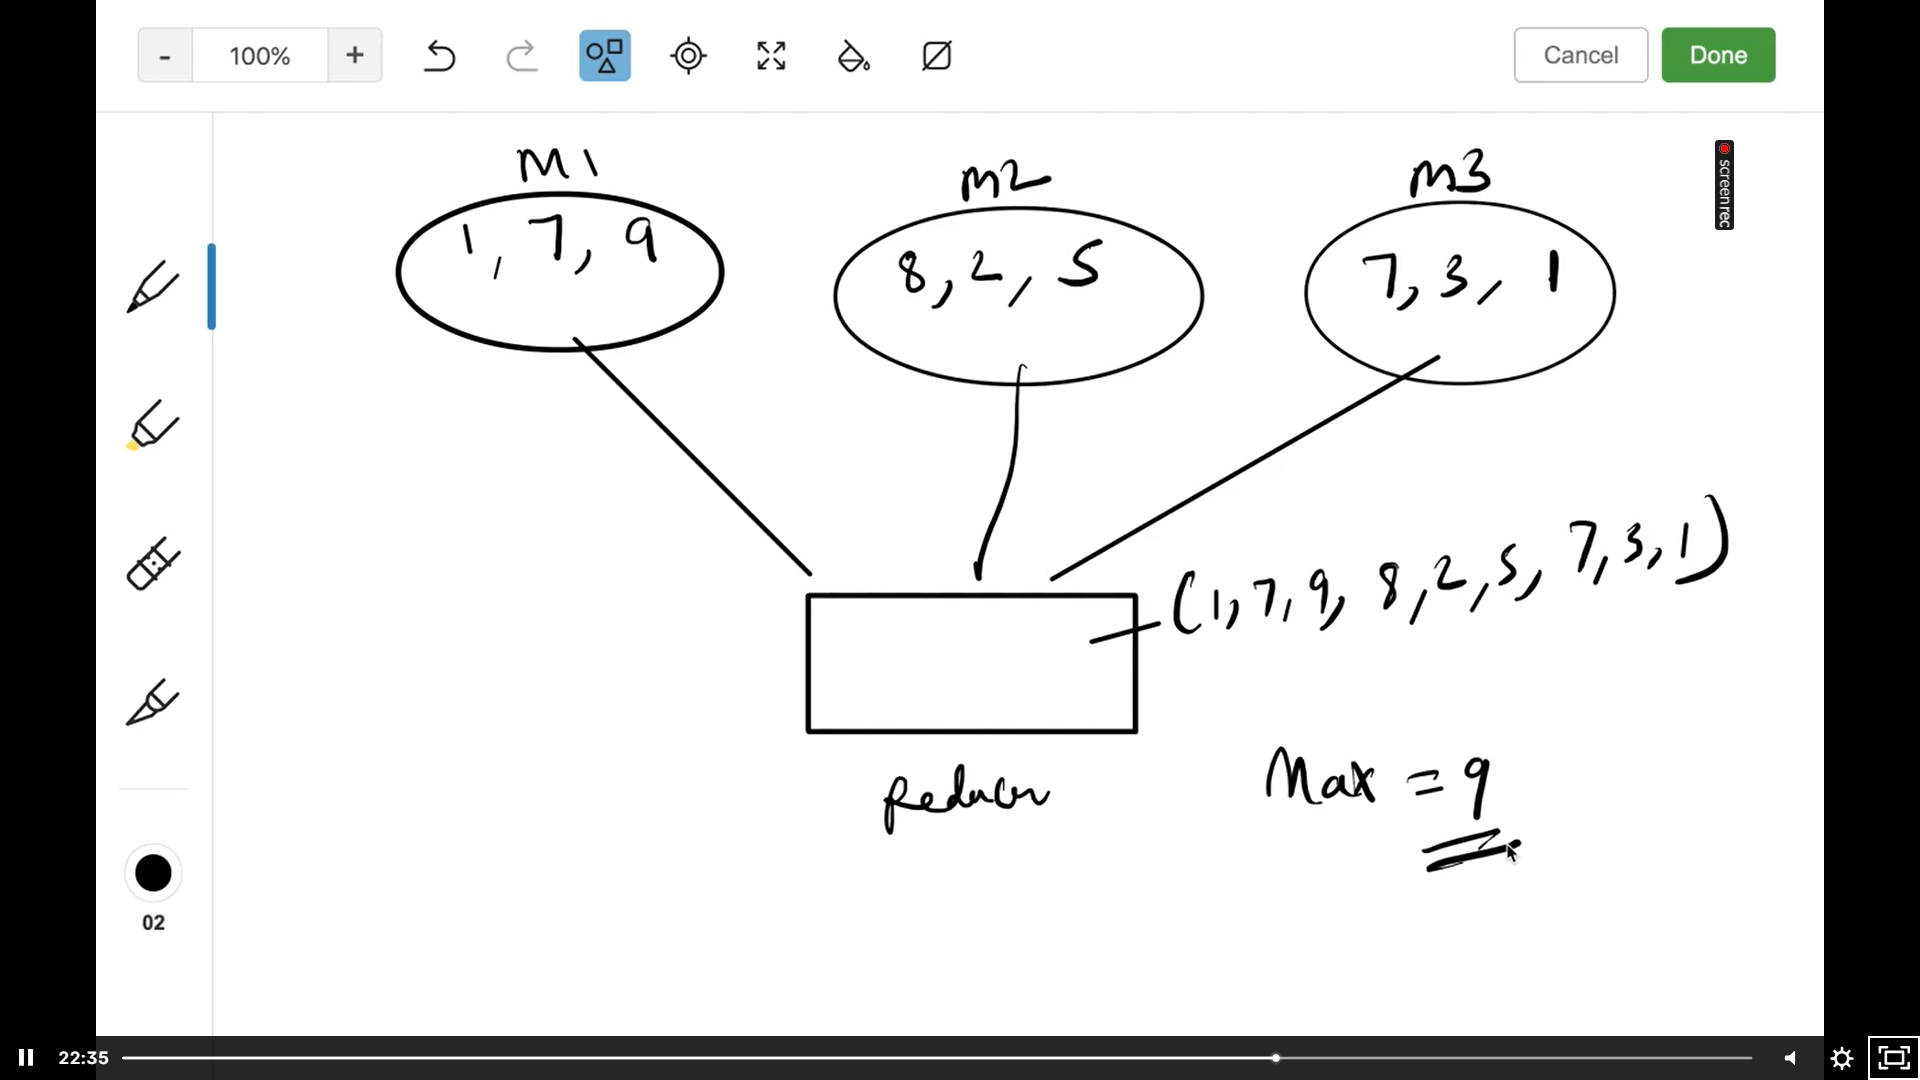 - 100% + Cancel Done
screenrec
M1 m2 m3
1, 7, 9
8, 2, 5
7, 3, 1
(1, 7, 9, 8, 2, 5, 7, 3, 1)
Reducer
Max = 9
02
22:35